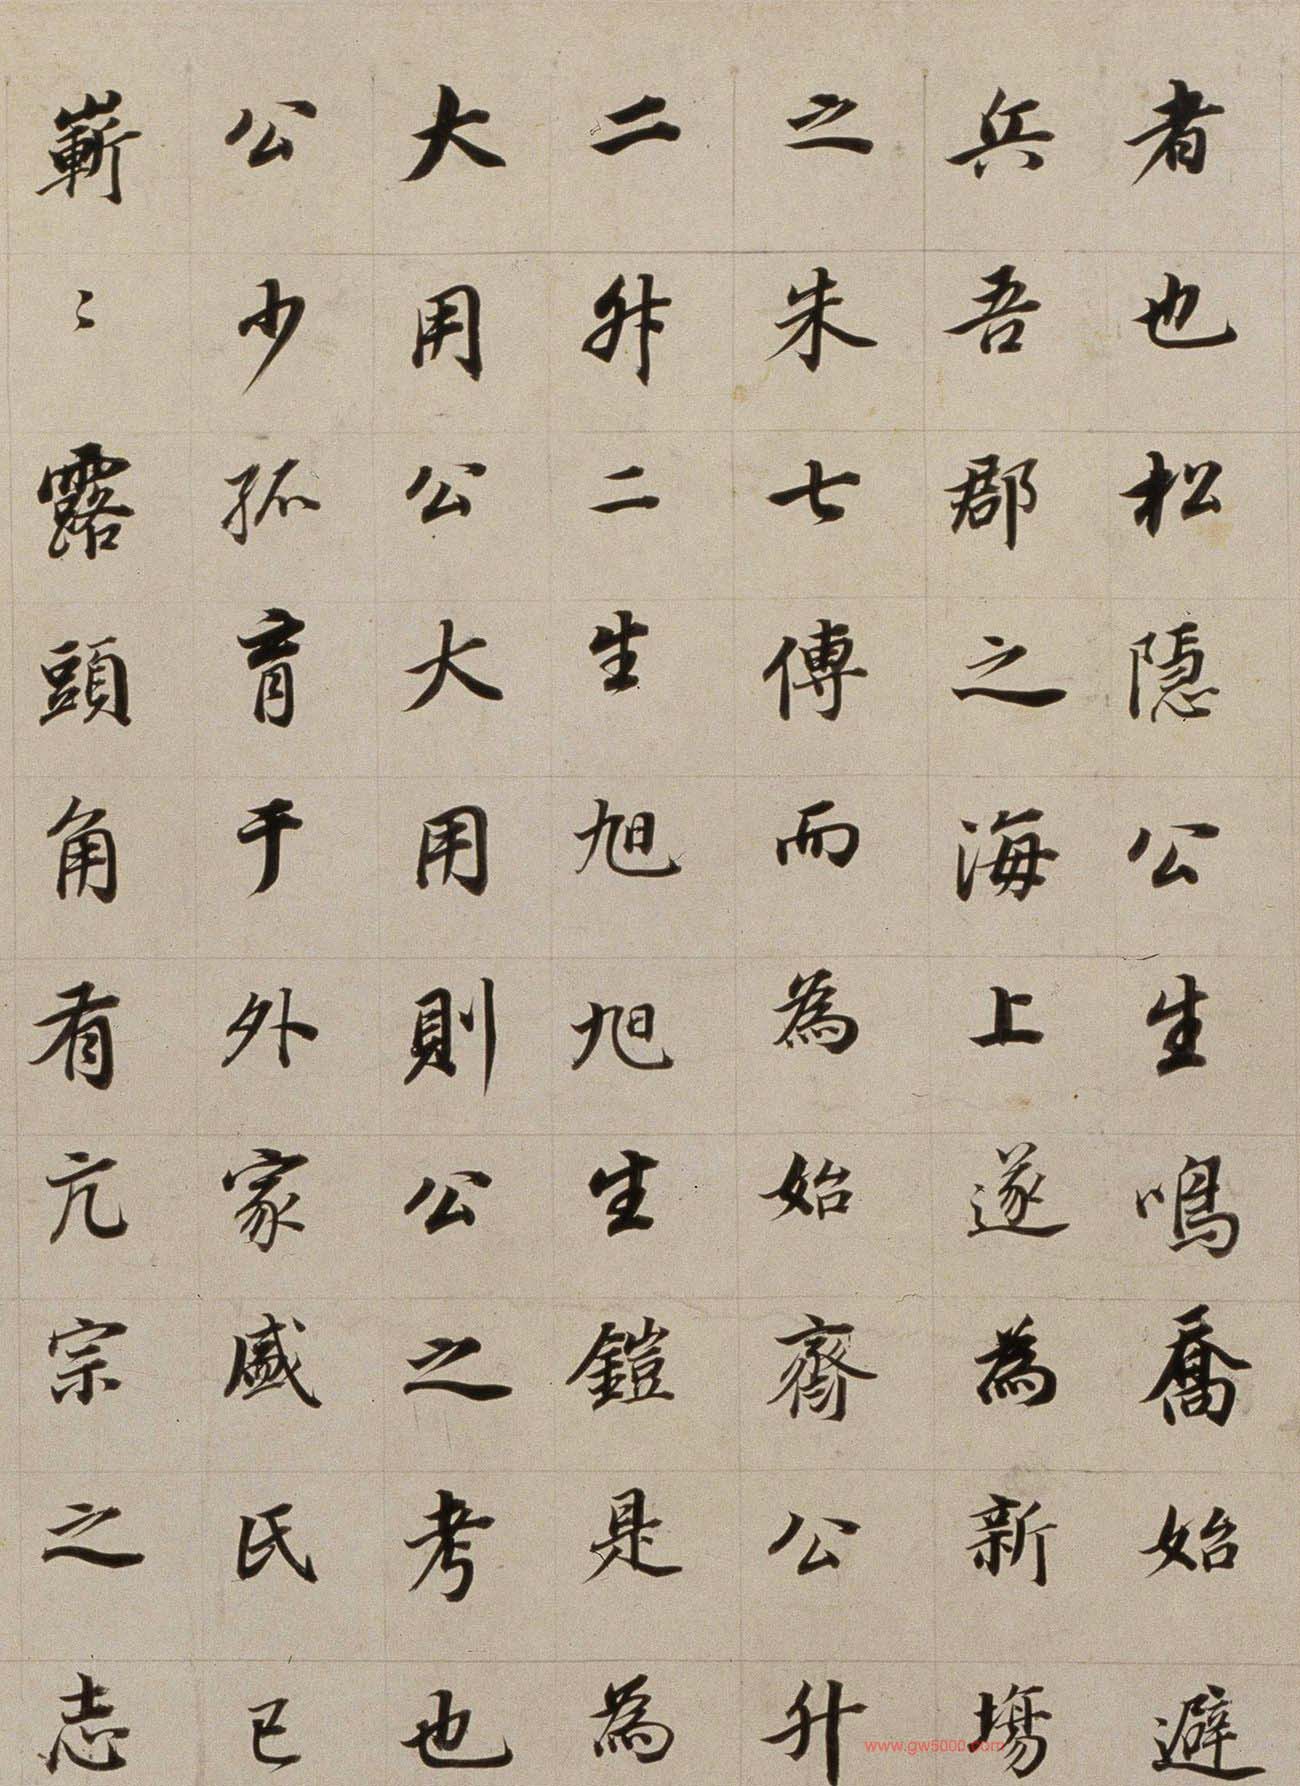 者也松隱公生鳴喬始避
兵吾郡之海上遂為新塲
之朱七傳而為始齊公升
二升二生旭旭生鎧是為
大用公大用則公之考也
公少孤育于外家戚氏已
嶄〻露頭角有亢宗之志
www.gw5000.com